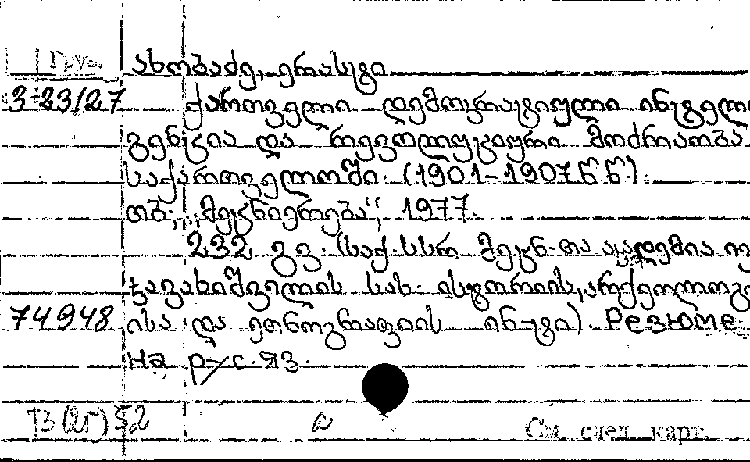 Груз.
ახობაძე, ერასტი
3-23/27 ქართველი დემოკრატიული ინტელი
გენცია და რევოლუციური მოძრაობა
საქართველოში. (1901-1907წწ).
თბ., „მეცნიერება“, 1977.
232 გვ. (საქ.სსრ მეცნ-თა აკადემია ივ
ჯავახიშვილის სახ. ისტორიის, არქეოლოგი
74948 ისა და ეთნოგრაფიის ინ-ტი). Резюме
на рус.яз.
T3(2Г)52 а См. след. карт.